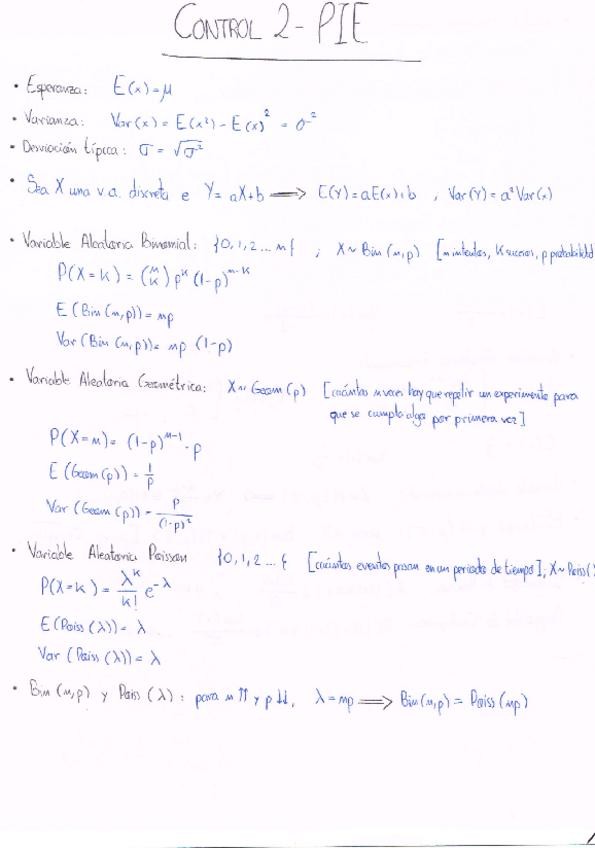 CONTROL 2 - PIE
• Esperanza: E(x) = μ
• Varianza: Var(x) = E(x²) - E(x)² = σ²
• Desviación típica: σ = √σ²
• Sea X una v.a. discreta e Y = aX+b ⟹ E(Y) = aE(x)+b , Var(Y) = a² Var(x)
• Variable Aleatoria Binomial: {0,1,2...n} ; X ~ Bin(n,p) [n intentos, K sucesos, p probabilidad
P(X=K) = (n K) p^K (1-p)^(n-K)
E(Bin(n,p)) = np
Var(Bin(n,p)) = np (1-p)
• Variable Aleatoria Geométrica: X ~ Geom(p) [cuántas n veces hay que repetir un experimento para
que se cumpla algo por primera vez]
P(X=n) = (1-p)^(n-1) · p
E(Geom(p)) = 1/p
Var(Geom(p)) = p/(1-p)²
• Variable Aleatoria Poisson {0,1,2...} [cuántos eventos pasan en un periodo de tiempo], X ~ Poiss(
P(X=k) = λ^k/k! e^(-λ)
E(Poiss(λ)) = λ
Var(Poiss(λ)) = λ
• Bin(n,p) y Poiss(λ): para n↑↑ y p↓↓, λ = np ⟹ Bin(n,p) = Poiss(np)